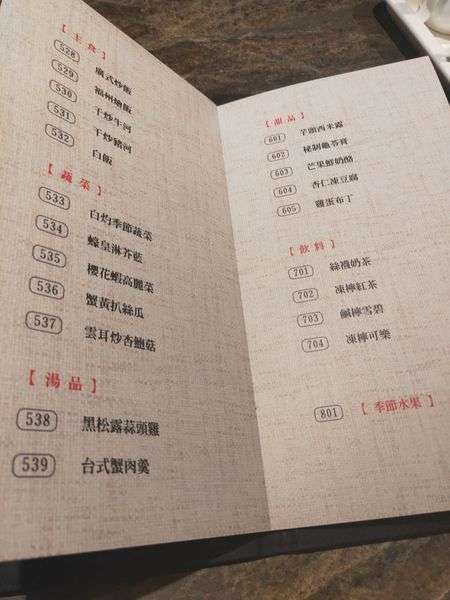 【主食】
528 廣式炒飯
529 福州燴飯
530 干炒牛河
531 干炒豬河
532 白飯
【蔬菜】
533 白灼季節蔬菜
534 蠔皇淋芥藍
535 櫻花蝦高麗菜
536 蟹黃扒絲瓜
537 雲耳炒杏鮑菇
【湯品】
538 黑松露蒜頭雞
539 台式蟹肉羹
【甜品】
601 芋頭西米露
602 秘制龜苓膏
603 芒果鮮奶酪
604 杏仁凍豆腐
605 雞蛋布丁
【飲料】
701 絲襪奶茶
702 凍檸紅茶
703 鹹檸雪碧
704 凍檸可樂
801 【季節水果】